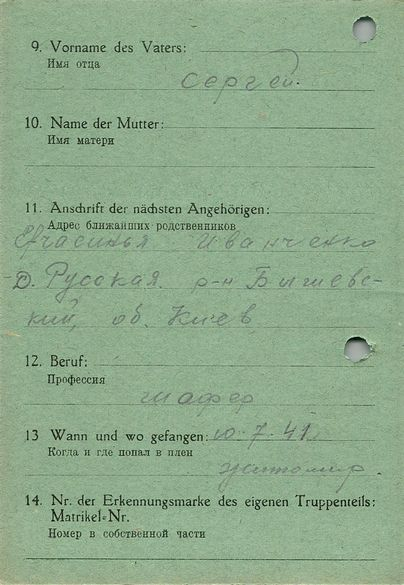 9. Vorname des Vaters:
Имя отца
Сергей.
10. Name der Mutter:
Имя матери
11. Anschrift der nächsten Angehörigen:
Адрес ближайших родственников
Иванченко
Д. Русская р-н Бышевс-
кий, об. Киев
12. Beruf:
Профессия
шафер
13 Wann und wo gefangen: 10.7.41
Когда и где попал в плен
житомир.
14. Nr. der Erkennungsmarke des eigenen Truppenteils:
Matrikel-Nr.
Номер в собственной части